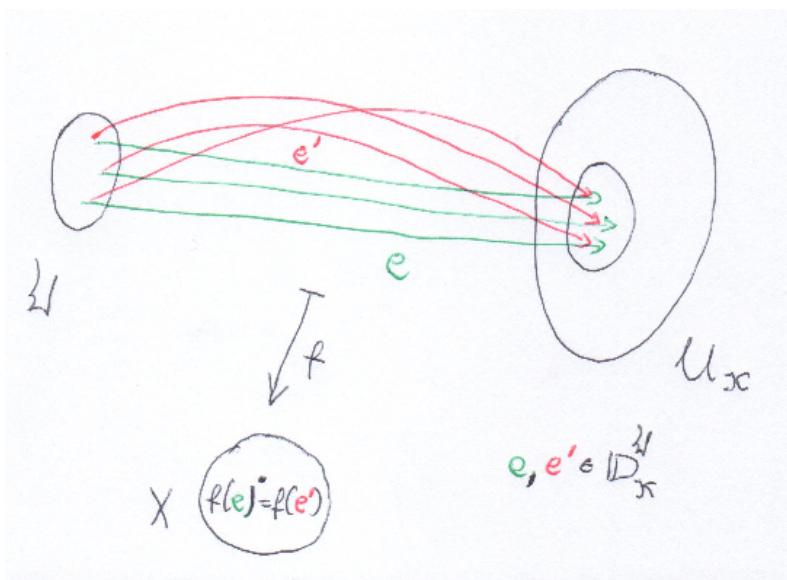 e'
e
f
𝒰ₓ
X f(e) = f(e')
e, e' ∈ 𝔻ₓ